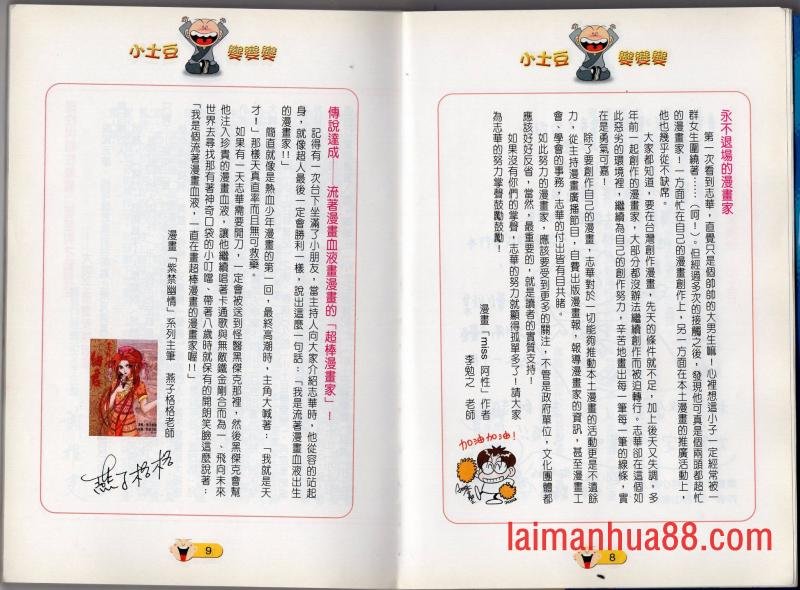 小土豆 變變變
永不退場的漫畫家
第一次看到志華，直覺只是個帥帥的大男生嘛，心裡想這小子一定經常被一
群女生圍繞著……（呵！）。但經過多次的接觸之後，發現他可真是個兩頭都超忙
的漫畫家！一方面忙在自己的漫畫創作上，另一方面在本土漫畫的推廣活動上，
他也幾乎從不缺席。
大家都知道，要在台灣創作漫畫，先天的條件就不足，加上後天又失調，多
年前一起創作的漫畫家，大部分都沒辦法繼續創作而被迫轉行。志華卻在這個如
此惡劣的環境裡，繼續為自己的創作努力，辛苦地畫出每一筆每一筆的線條，實
在是勇氣可嘉！
除了要創作自己的漫畫，志華對於一切能夠推動本土漫畫的活動更是不遺餘
力，從主持漫畫廣播節目，自費出版漫畫報，報導漫畫家的資訊，甚至漫畫工
會、學會的事務，志華的付出皆有目共睹。
如此努力的漫畫家，應該要受到更多的關注，不管是政府單位，文化團體都
應該好好反省，當然，最重要的，就是讀者的實質支持！
如果沒有你們的掌聲，志華的努力就顯得孤單多了！請大家
為志華的努力掌聲鼓勵鼓勵！
漫畫「miss 阿性」作者
李勉之 老師
加油加油！
8
小土豆 變變變
傳說達成——流著漫畫血液畫漫畫的「超棒漫畫家」！
記得有一次台下坐滿了小朋友，當主持人向大家介紹志華時，他從容的站起
身，就像超人最後一定會勝利一樣，說出這麼一句話：「我是流著漫畫血液出生
的漫畫家！」
簡直就像是熱血少年漫畫的第一回，最終高潮時，主角大喊著：「我就是天
才！」那樣天真直率而且無可救藥。
如果有一天志華需要開刀，一定會被送到怪醫黑傑克那裡，然後黑傑克會幫
他注入珍貴的漫畫血液，讓他繼續唱著卡通歌與無敵鐵金剛合而為一、飛向未來
世界去尋找那有著神奇口袋的小叮噹、帶著八歲時就保有的開朗笑臉這麼說著：
「我是個流著漫畫血液，一直在畫超棒漫畫的漫畫家喔！！」
漫畫「紫禁幽情」系列主筆 燕子格格老師
燕子格格
9
laimanhua88.com